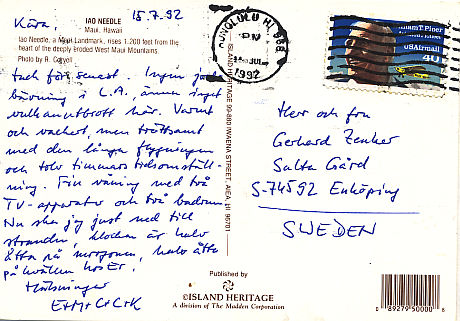 15.7.92
Kära,
IAO NEEDLE
Maui, Hawaii
Iao Needle, a Maui Landmark, rises 1,200 feet from the
heart of the deeply eroded West Maui Mountains.
Photo by R.
Tack för senast. Ingen
bävning i L.A., ännu inget
vulkanutbrott här. Varmt
och vackert, men tröttsamt
med den långa flygningen
och tolv timmars tidsomställ-
ning. Fin våning med två
TV-apparater och två badrum.
Nu ska jag just ned till
stranden, klockan är halv
åtta på morgonen, halv åtta
på kvällen hos Er.
Hälsningar
E+M+C+C+K
©ISLAND HERITAGE 99-880 IWAENA STREET, AIEA, HI 96701
HONOLULU HI 968
PM
JUL
1992
Piper
USAirmail
40
Herr och fru
Gerhard Zenker
Salta Gård
S-74592 Enköping
SWEDEN
Published by
©ISLAND HERITAGE
A division of The Madden Corporation
0 89279 50000 8